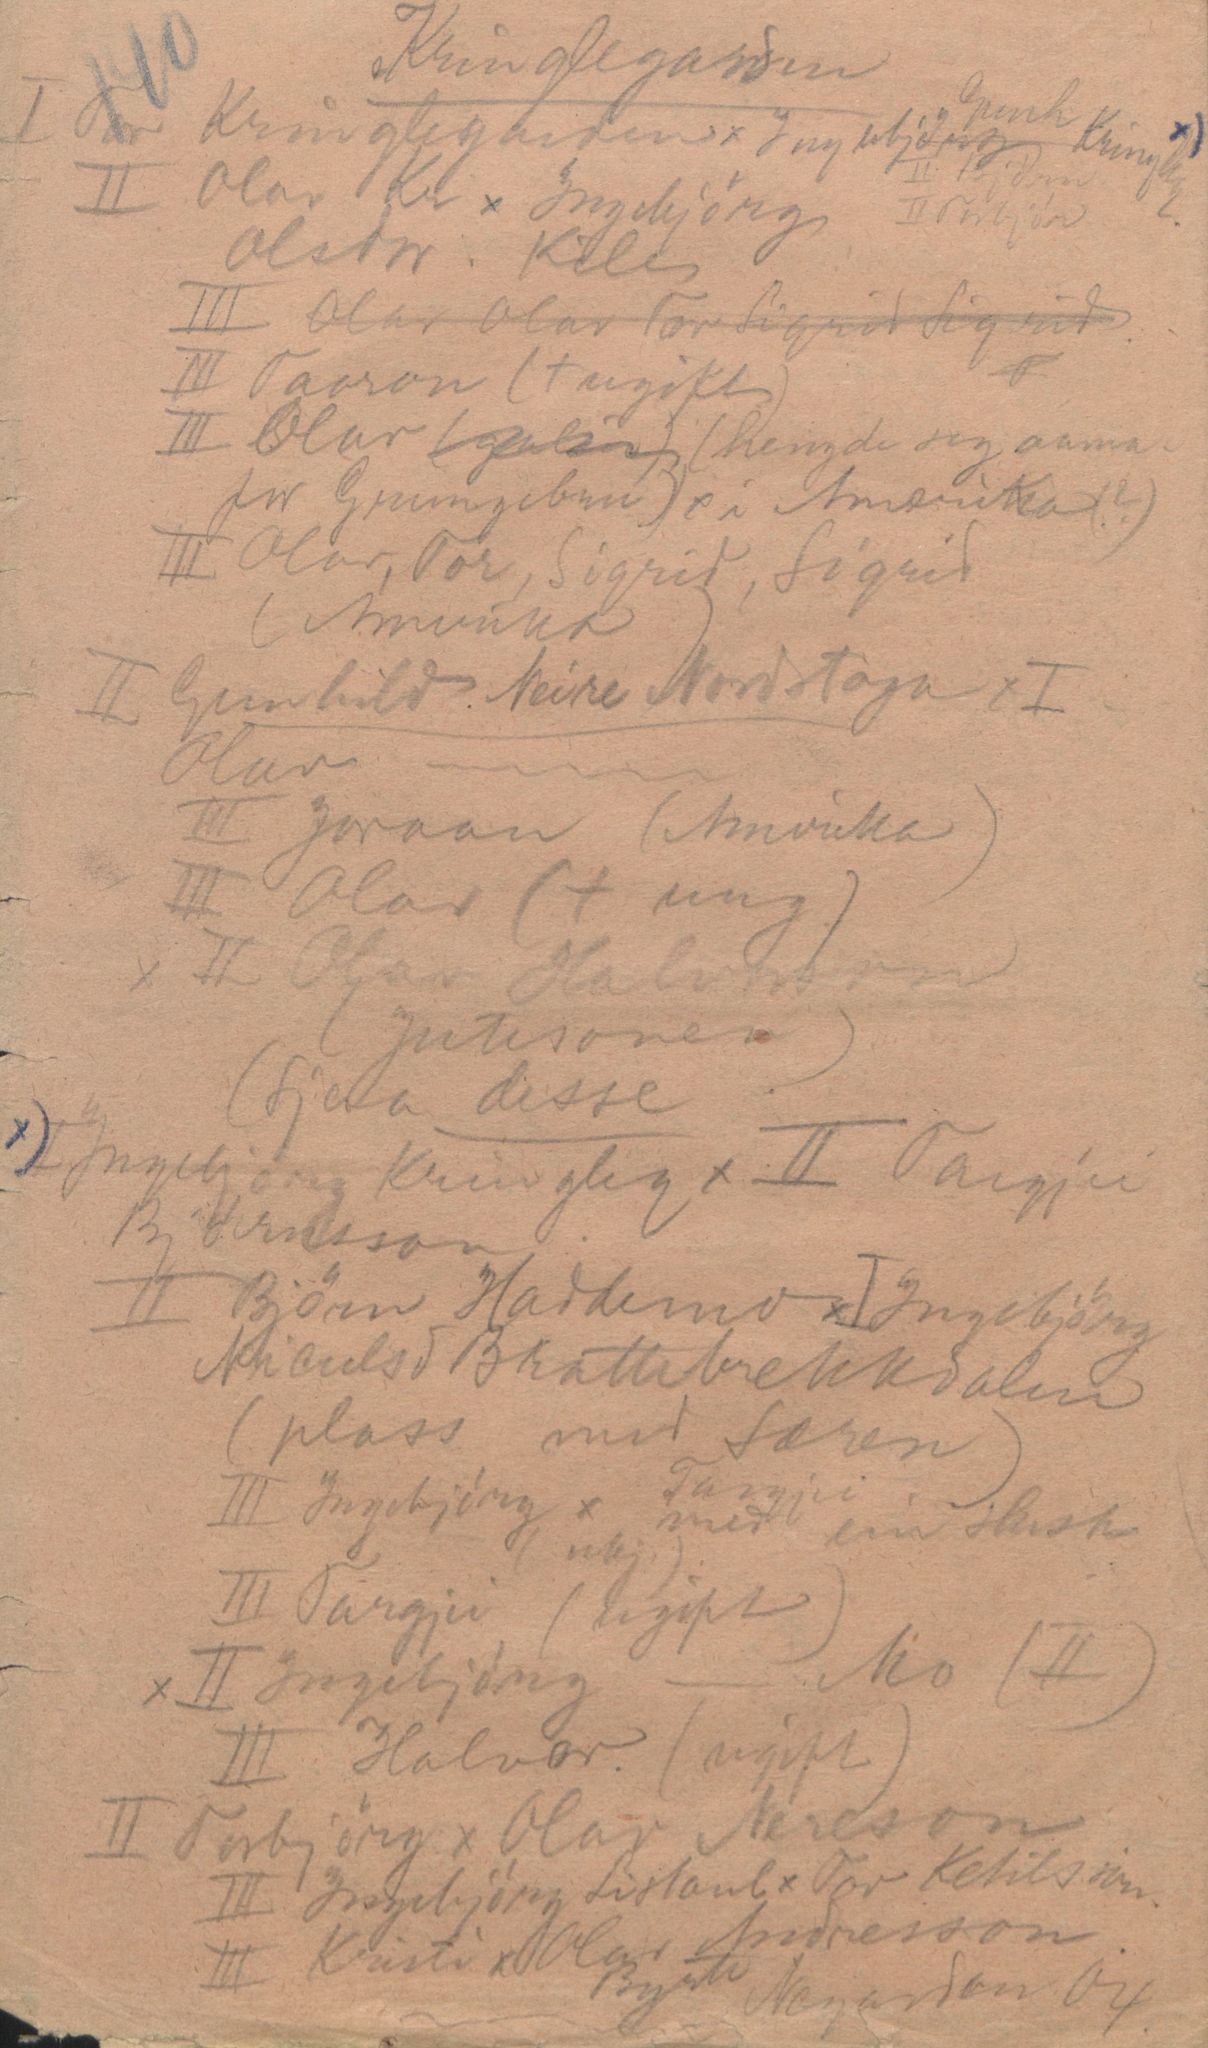 140
Kringlegarden
I Tor Kringlegarden x Ingebjörg Kringleg. x)
II Björn
II Torbjör
II Olav Kr x Ingebjörg
Olsdtr. Kile
III Olav Olav Tor Sigrid Sigrid
III Taaron (+ ugift)
III Olav (hengde seg
for Grungebru) x i Amerika (?)
III Olav, Tor, Sigrid, Sigrid
(Amerika)
II Gunhild Neire Nordstoga x I
Olav
III Joraan (Amerika)
III Olav (+ ung)
x II Olav Halvorson
(Jutesonen)
(Sjaa disse
x) I Ingebjörg Kringleg x II Targjei
Björnsson
II Björn Haddemo x I Ingebjörg
Niculsd Brattebrekkdalen
(plass med Særen)
III Ingebjörg x Targjei
med ein slusk
III Targjei (ugift)
x II Ingebjörg — Mo (II)
III Halvor. (ugift)
II Torbjörg x Olav Nereson
III Ingebjörg Sistaul x Tor Ketilsson.
III Kristi x Olav Andresson
Byrte Nagardan Ox